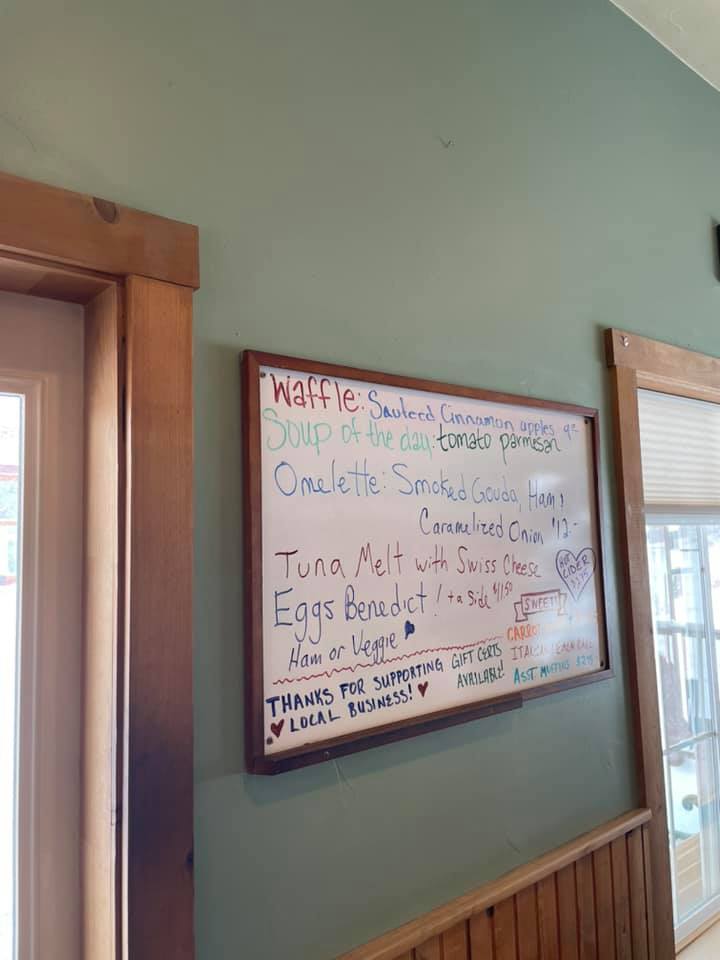 Waffle: Sauteed Cinnamon apples 9-
Soup of the day: tomato parmesan
Omelette: Smoked Gouda, Ham &
Caramelized Onion $12-
Tuna Melt with Swiss Cheese
+ a side $11.50
Eggs Benedict!
Ham or Veggie
HOT
CIDER
SWEET!
CARROT
ITALIAN CAKE
ASST MUFFINS
GIFT CERTS
AVAILABLE!
THANKS FOR SUPPORTING
LOCAL BUSINESS!